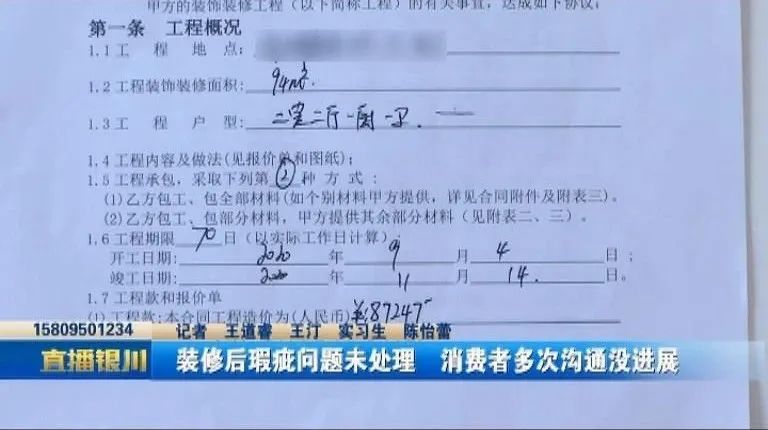 甲方的装饰装修工程（以下简称工程）的有关事宜，达成如下协议：
第一条 工程概况
1.1 工 程 地 点：
1.2 工程装饰装修面积：94㎡.
1.3 工 程 户 型：二室二厅一厨一卫.
1.4 工程内容及做法(见报价单和图纸)；
1.5 工程承包，采取下列第②种 方 式：
(1)乙方包工、包全部材料(如个别材料甲方提供，详见合同附件及附表三)。
(2)乙方包工、包部分材料，甲方提供其余部分材料（见附表二、三）。
1.6 工程期限 70 日（以实际工作日计算）；
开工日期：2020 年 9 月 4 日；
竣工日期：2020 年 11 月 14. 日。
1.7 工程款和报价单
(1)工程款:本合同工程造价为(人民币)¥:87247
15809501234 记者 王道睿 王汀 实习生 陈怡蕾
直播银川 装修后瑕疵问题未处理 消费者多次沟通没进展